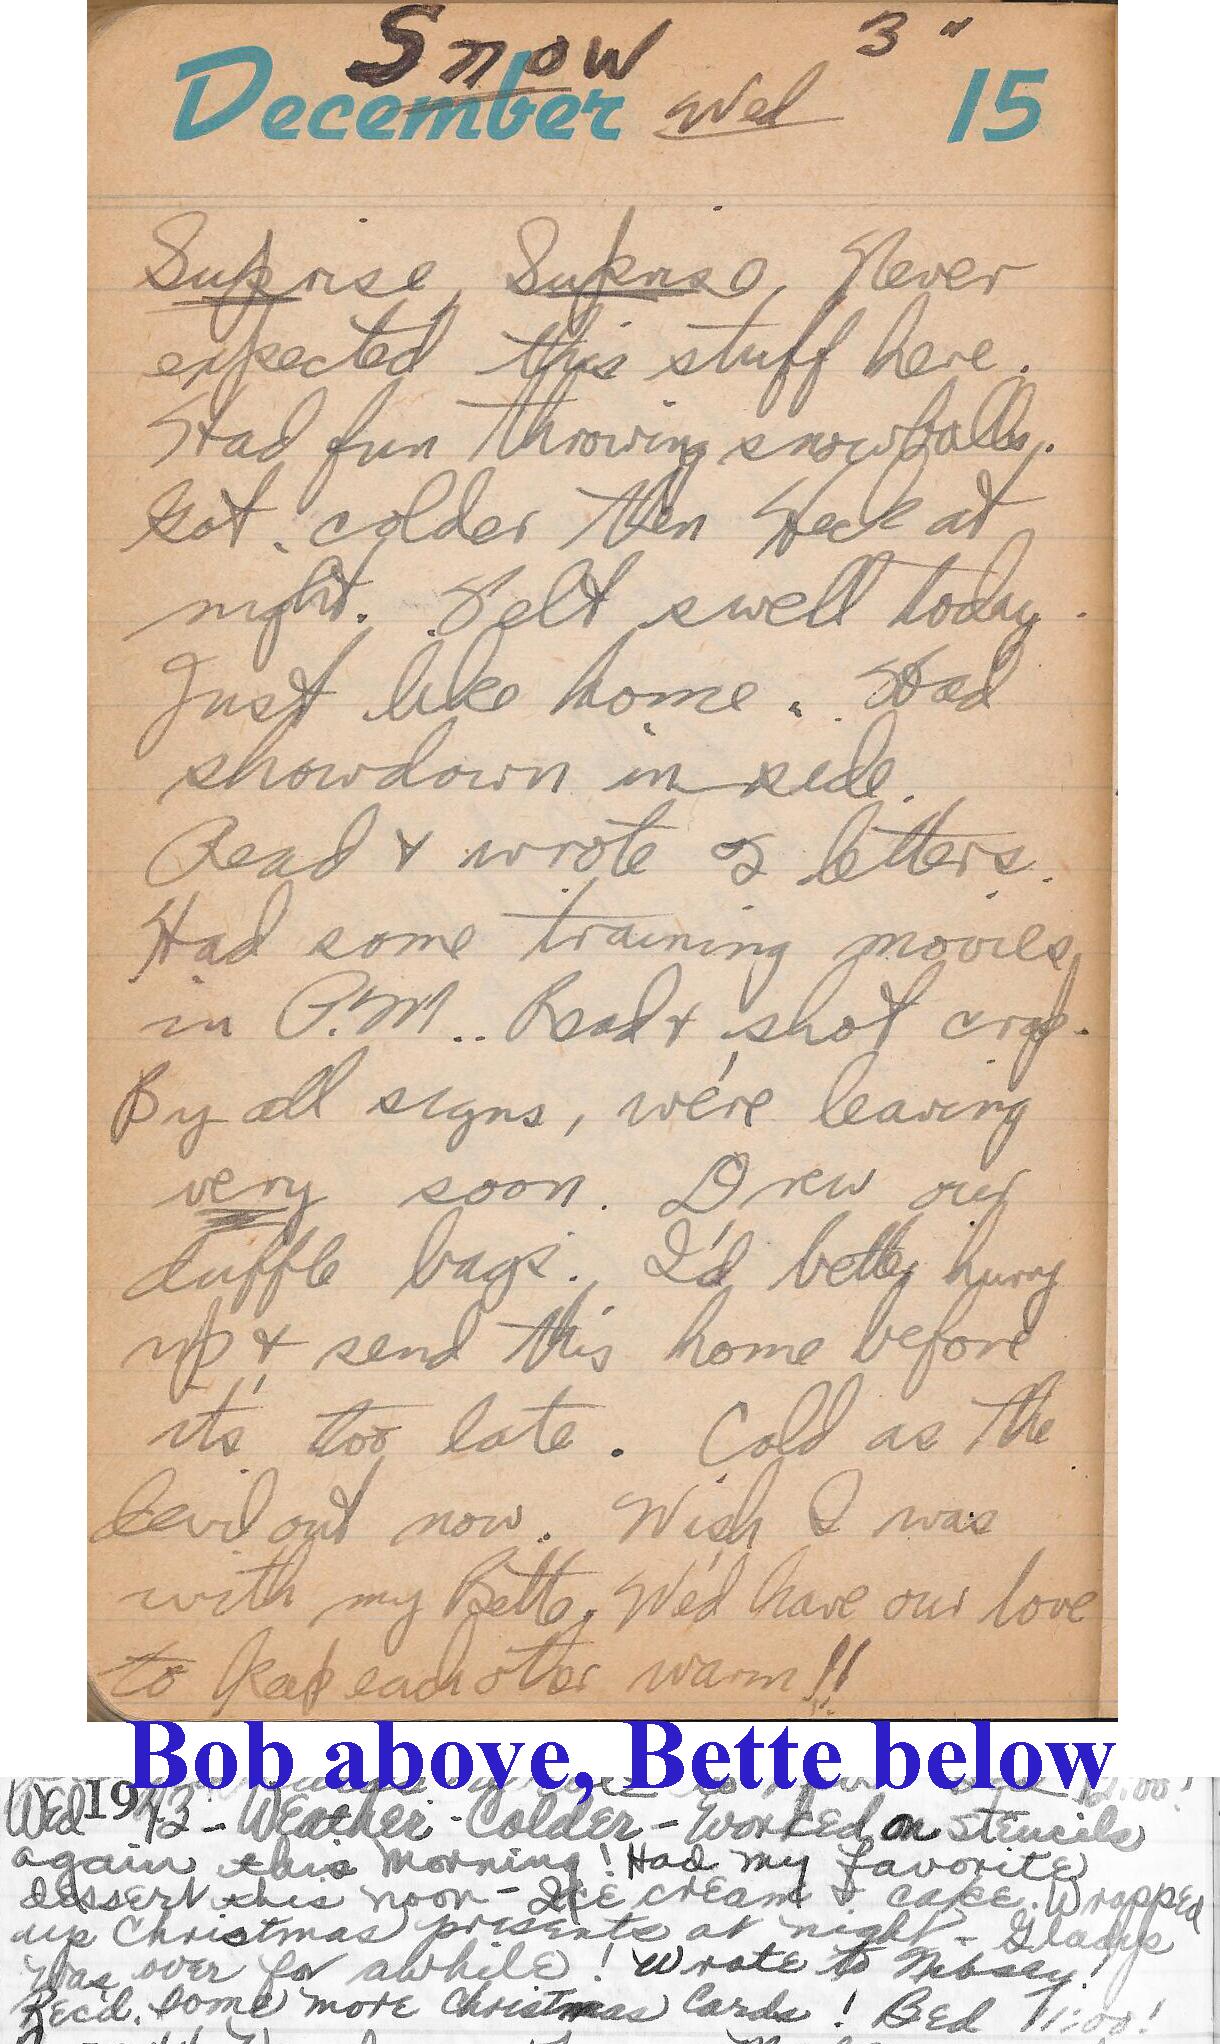 Snow 3"
December Wed 15
Suprise, Suprise, Never
expected this stuff here.
Had fun throwing snowballs.
Got colder then Heck at
night. Felt swell today.
Just like home. Had
showdown in side.
Read & wrote 2 letters.
Had some training movies
in P.M.. Read & shot crap.
By all signs, we're leaving
very soon. Drew our
duffle bags. I'd better hurry
up & send this home before
it's too late. Cold as the
devil out now. Wish I was
with my Bette. We'd have our love
to keep each other warm!!
Bob above, Bette below
Wed 1943 - Weather - Colder - Worked on stencils
again this morning! Had my favorite
dessert this noon - Ice cream & cake. Wrapped
up Christmas presents at night - Gladys
was over for awhile! Wrote to
Rec'd. some more Christmas Cards! Bed 11:00!